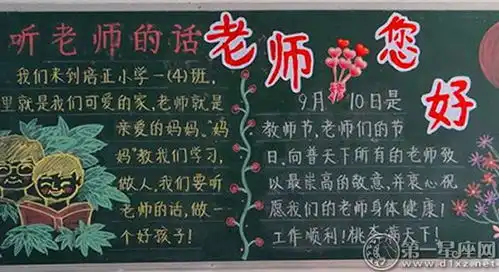 听老师的话
我们来到培正小学一(4)班,
里就是我们可爱的家,老师就是
亲爱的妈妈。"妈
妈"教我们学习,
做人,我们要听
老师的话,做一
个好孩子!
老师您好
9月10日是
教师节,老师们的节
日,向普天下所有的老师致
以最崇高的敬意,并衷心祝
愿我们的老师身体健康!
工作顺利!桃李满天下!
第一星座网
www.d1xz.net